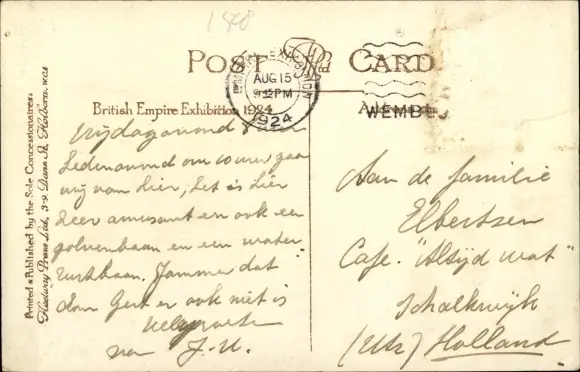 1598
POST CARD
EMPIRE EXHIBITION
AUG 15
1924
WEMB
British Empire Exhibition 1924
Printed & Published by the Sole Concessionaires:
Fleetway Press Ltd, 3-9 Dane St, Holborn, W.C.2
Vrijdagavond
Hedenavond om 10 uur gaan
wij van hier, het is hier
zeer amusant en ook een
golvenbaan en een water
rutschbaan. Jammer dat
dan Gert er ook niet is
van J.H.
Aan de familie
Elbertsen
Cafe. "Altijd wat"
Schalkwijk
(Utr) Holland